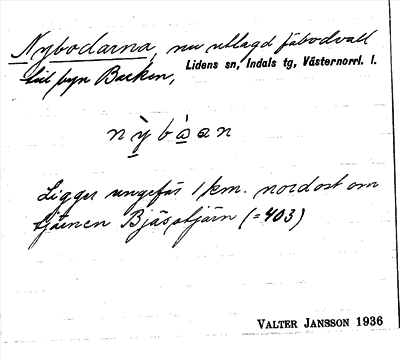 Nybodarna, nu utlagd fäbodvall
till byn Backen,
Lidens sn, Indals tg, Västernorrl. l.
nỳbàan
Ligger ungefär 1 km. nordost om
tjärnen Bjäs­tjärn (=403)
VALTER JANSSON 1936